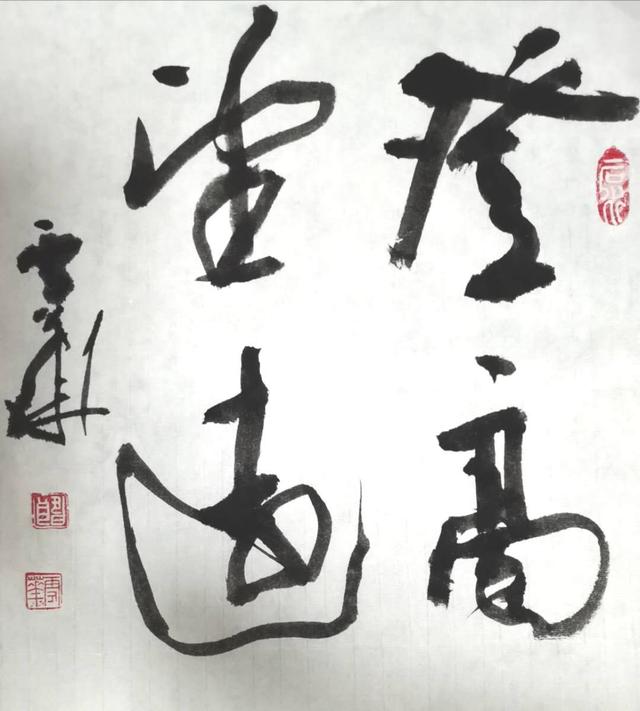 登高
望远